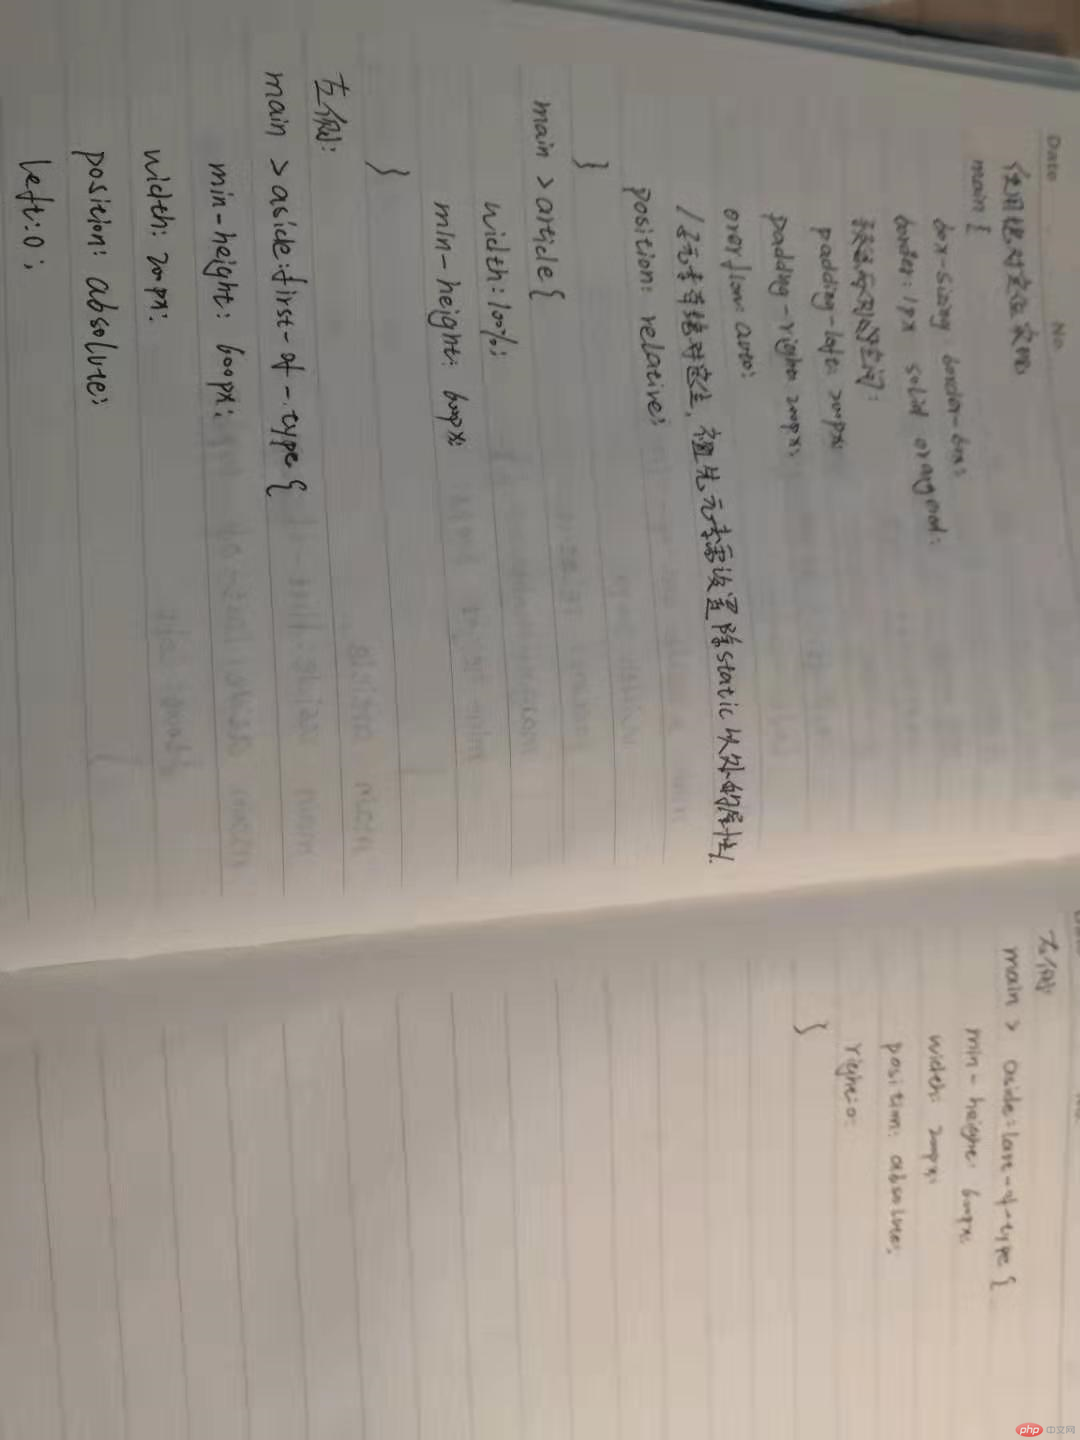 Date
No.
使用绝对定位实现
main {
box-sizing: border-box;
border: 1px solid orangered;
padding-left: 200px;
padding-right: 200px;
overflow: auto;
position: relative;
}
main > article {
width: 100%;
min-height: 600px;
}
左侧:
main > aside:first-of-type {
min-height: 600px;
width: 200px;
position: absolute;
left: 0;
右侧
main > aside:last-of-type {
min-height: 600px;
width: 200px;
position: absolute;
right: 0;
}
php 中文网